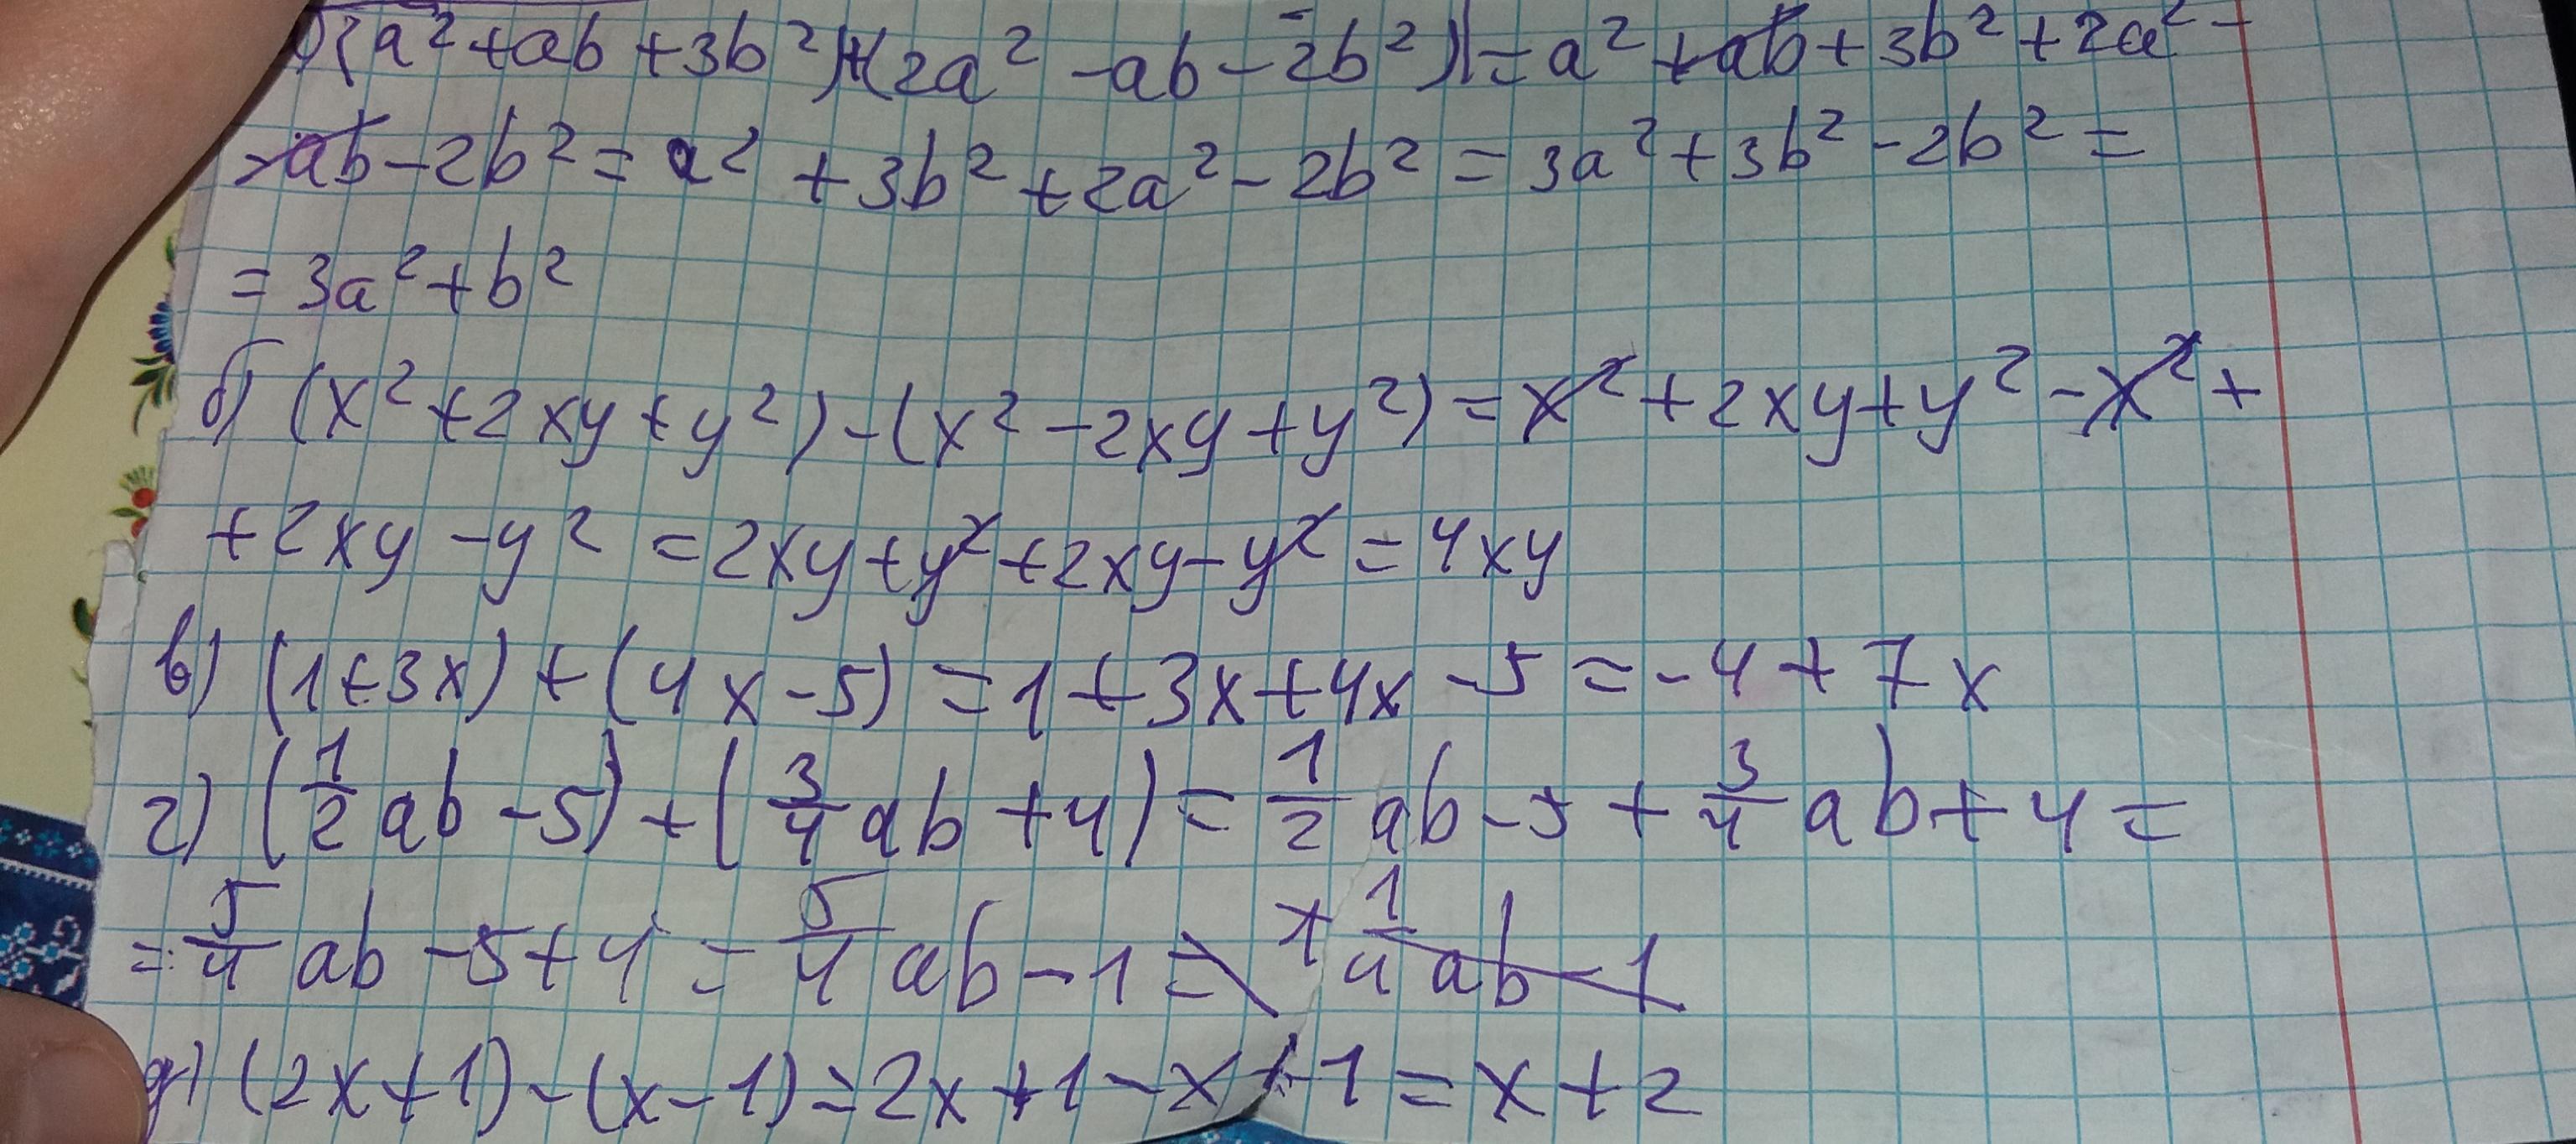 ) (a² + ab + 3b²) + (2a² - ab - 2b²) = a² + ab + 3b² + 2a² -
- ab - 2b² = a² + 3b² + 2a² - 2b² = 3a² + 3b² - 2b² =
= 3a² + b²
б) (x² + 2xy + y²) - (x² - 2xy + y²) = x² + 2xy + y² - x² +
+ 2xy - y² = 2xy + y² + 2xy - y² = 4xy
в) (1 + 3x) + (4x - 5) = 1 + 3x + 4x - 5 = -4 + 7x
г) (1/2 ab - 5) + (3/4 ab + 4) = 1/2 ab - 5 + 3/4 ab + 4 =
= 5/4 ab - 5 + 4 = 5/4 ab - 1 = 1 1/4 ab - 1
д) (2x + 1) - (x - 1) = 2x + 1 - x + 1 = x + 2